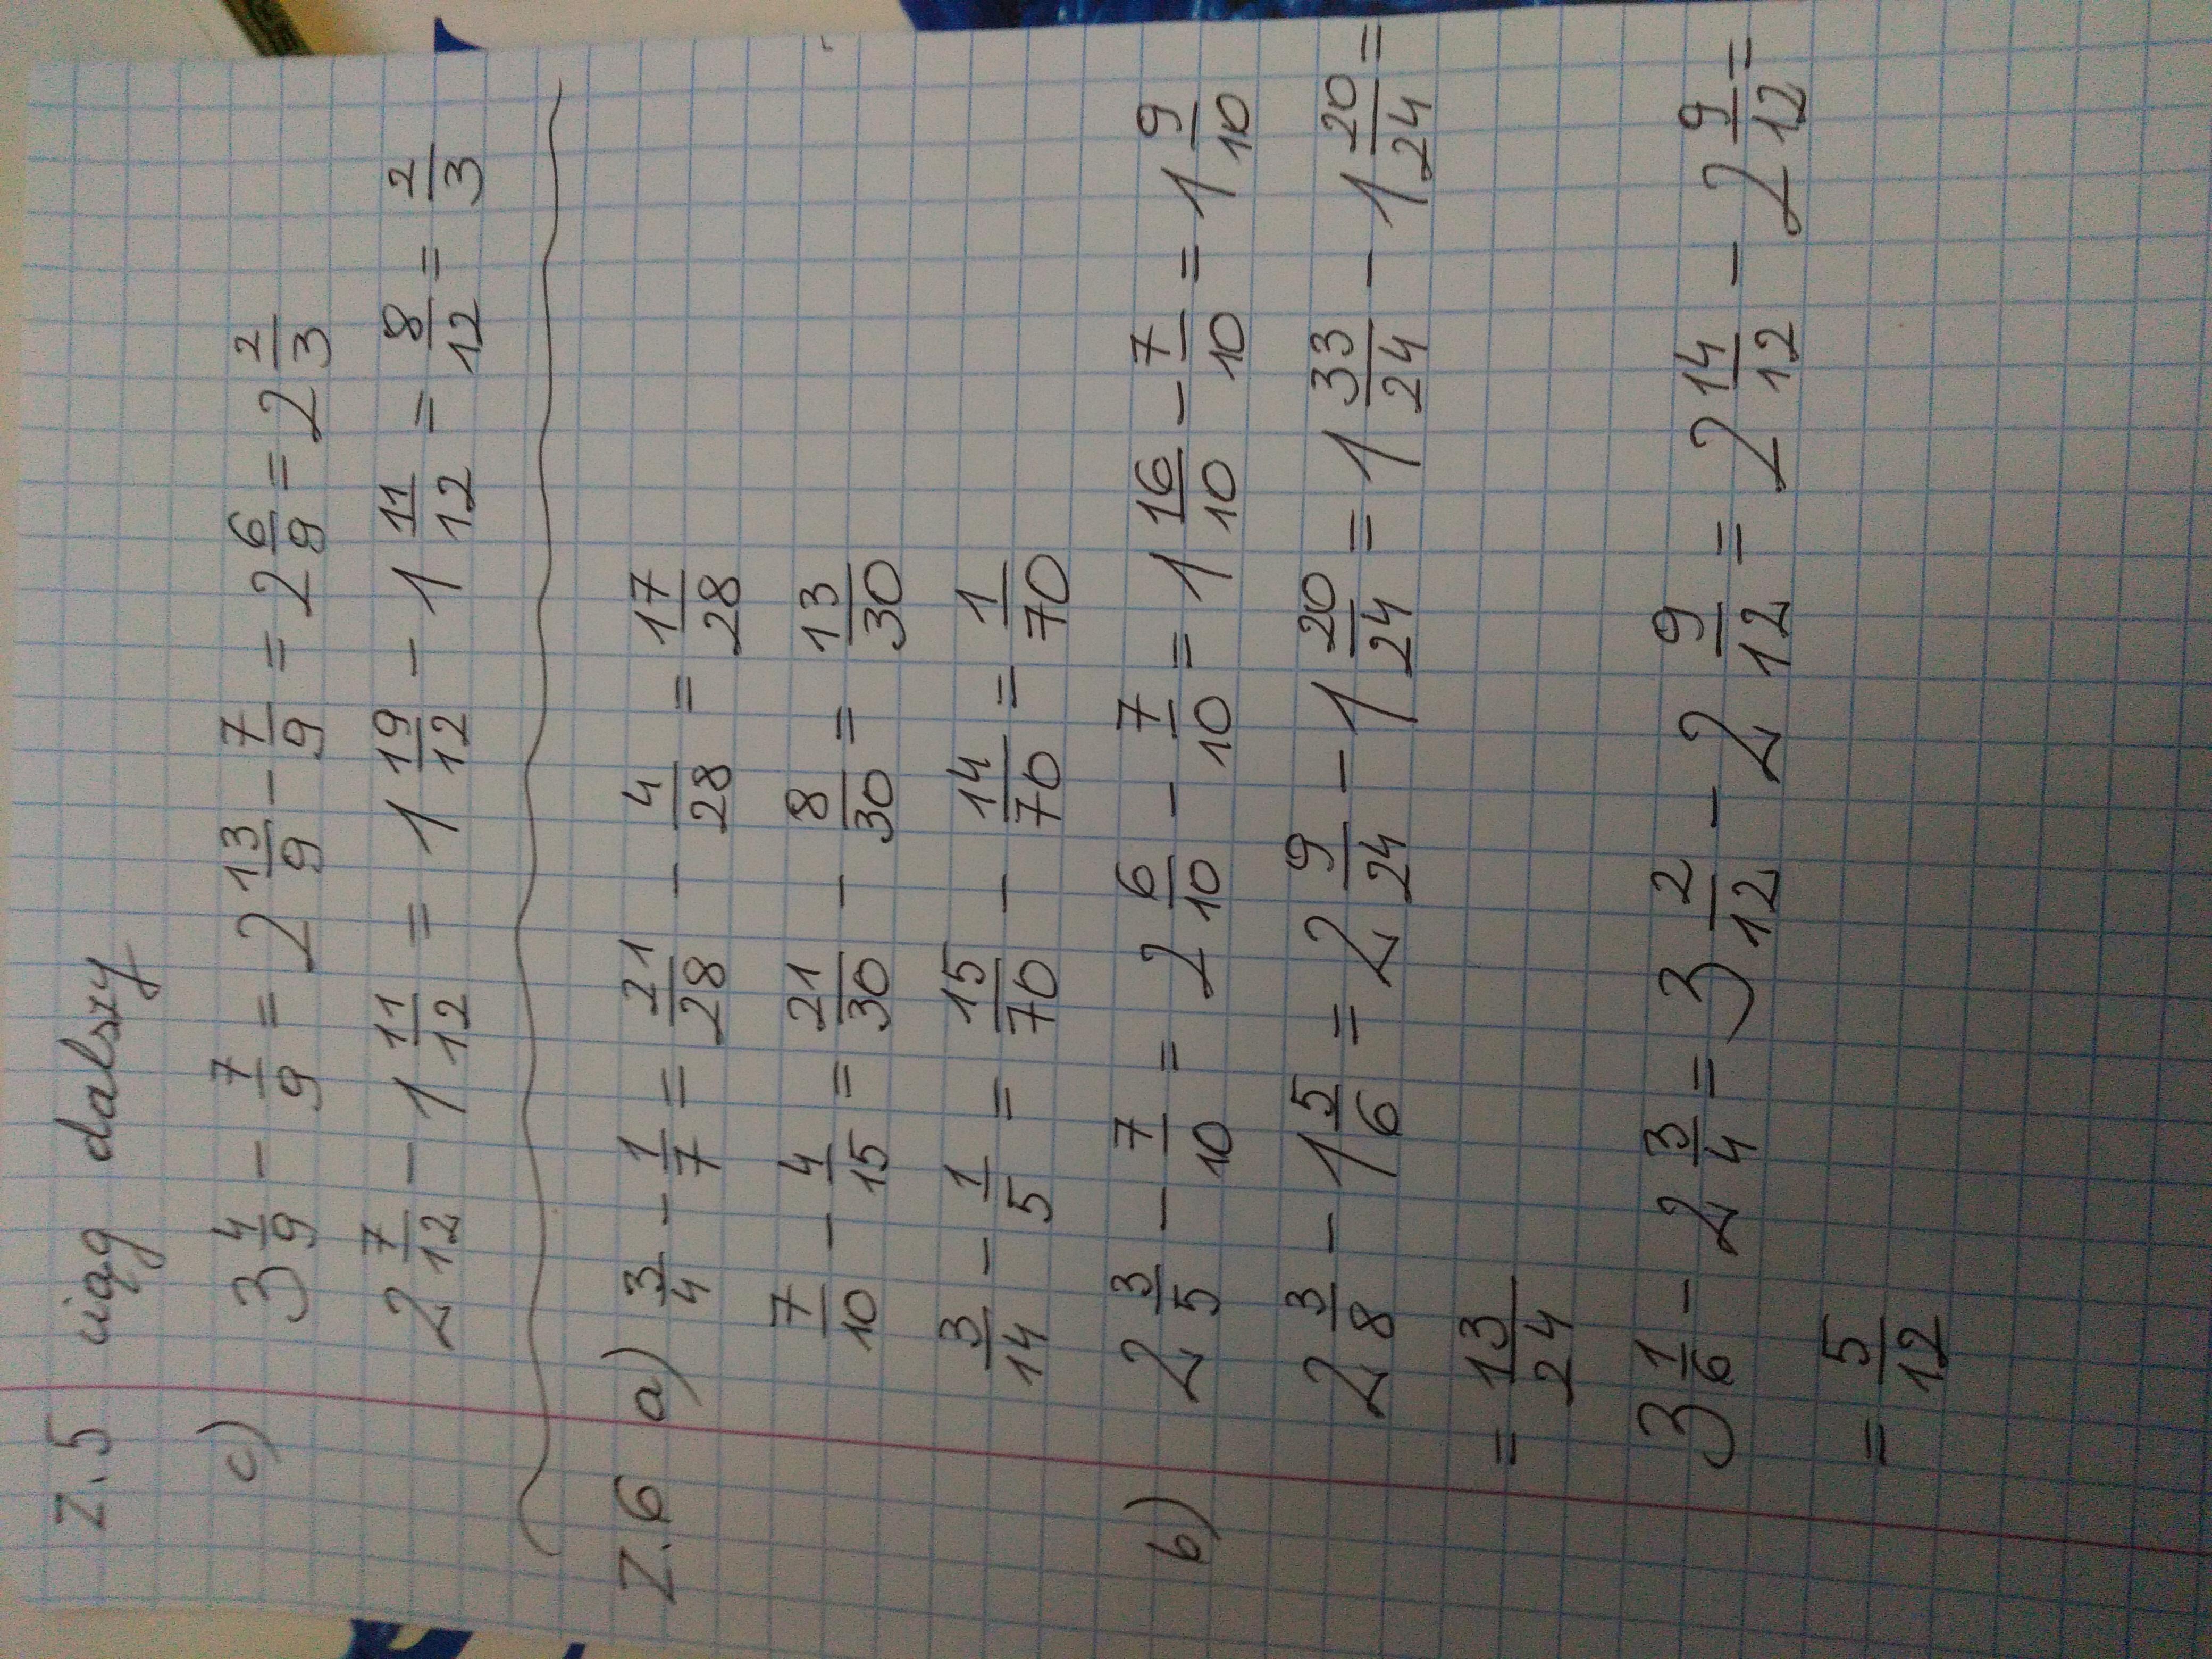 Z.5 ciąg dalszy
c) 3 4/9 - 7/9 = 2 13/9 - 7/9 = 2 6/9 = 2 2/3
2 7/12 - 1 11/12 = 1 19/12 - 1 11/12 = 8/12 = 2/3
Z.6 a) 3/4 - 1/7 = 21/28 - 4/28 = 17/28
7/10 - 4/15 = 21/30 - 8/30 = 13/30
3/14 - 1/5 = 15/70 - 14/70 = 1/70
b) 2 3/5 - 7/10 = 2 6/10 - 7/10 = 1 16/10 - 7/10 = 1 9/10
2 3/8 - 1 5/6 = 2 9/24 - 1 20/24 = 1 33/24 - 1 20/24 =
= 13/24
3 1/6 - 2 3/4 = 3 2/12 - 2 9/12 = 2 14/12 - 2 9/12 =
= 5/12